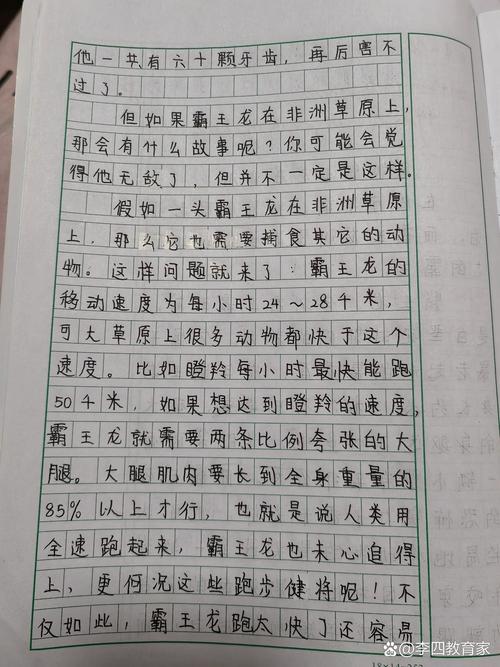 他一共有六十颗牙齿，再厉害不
过了。
但如果霸王龙在非洲草原上，
那会有什么故事呢？你可能会觉
得他无敌了，但并不一定是这样。
假如一头霸王龙在非洲草原
上，那么它也需要捕食其它的动
物。这样问题就来了：霸王龙的
移动速度为每小时24～28千米，
可大草原上很多动物都快于这个
速度。比如瞪羚每小时最快能跑
50千米，如果想达到瞪羚的速度，
霸王龙就需要两条比例夸张的大
腿。大腿肌肉要长到全身重量的
85%以上才行，也就是说人类用
全速跑起来，霸王龙也未心追得
上，更何况这些跑步健将呢！不
仅如此，霸王龙跑太快了还容易
@李四教育家